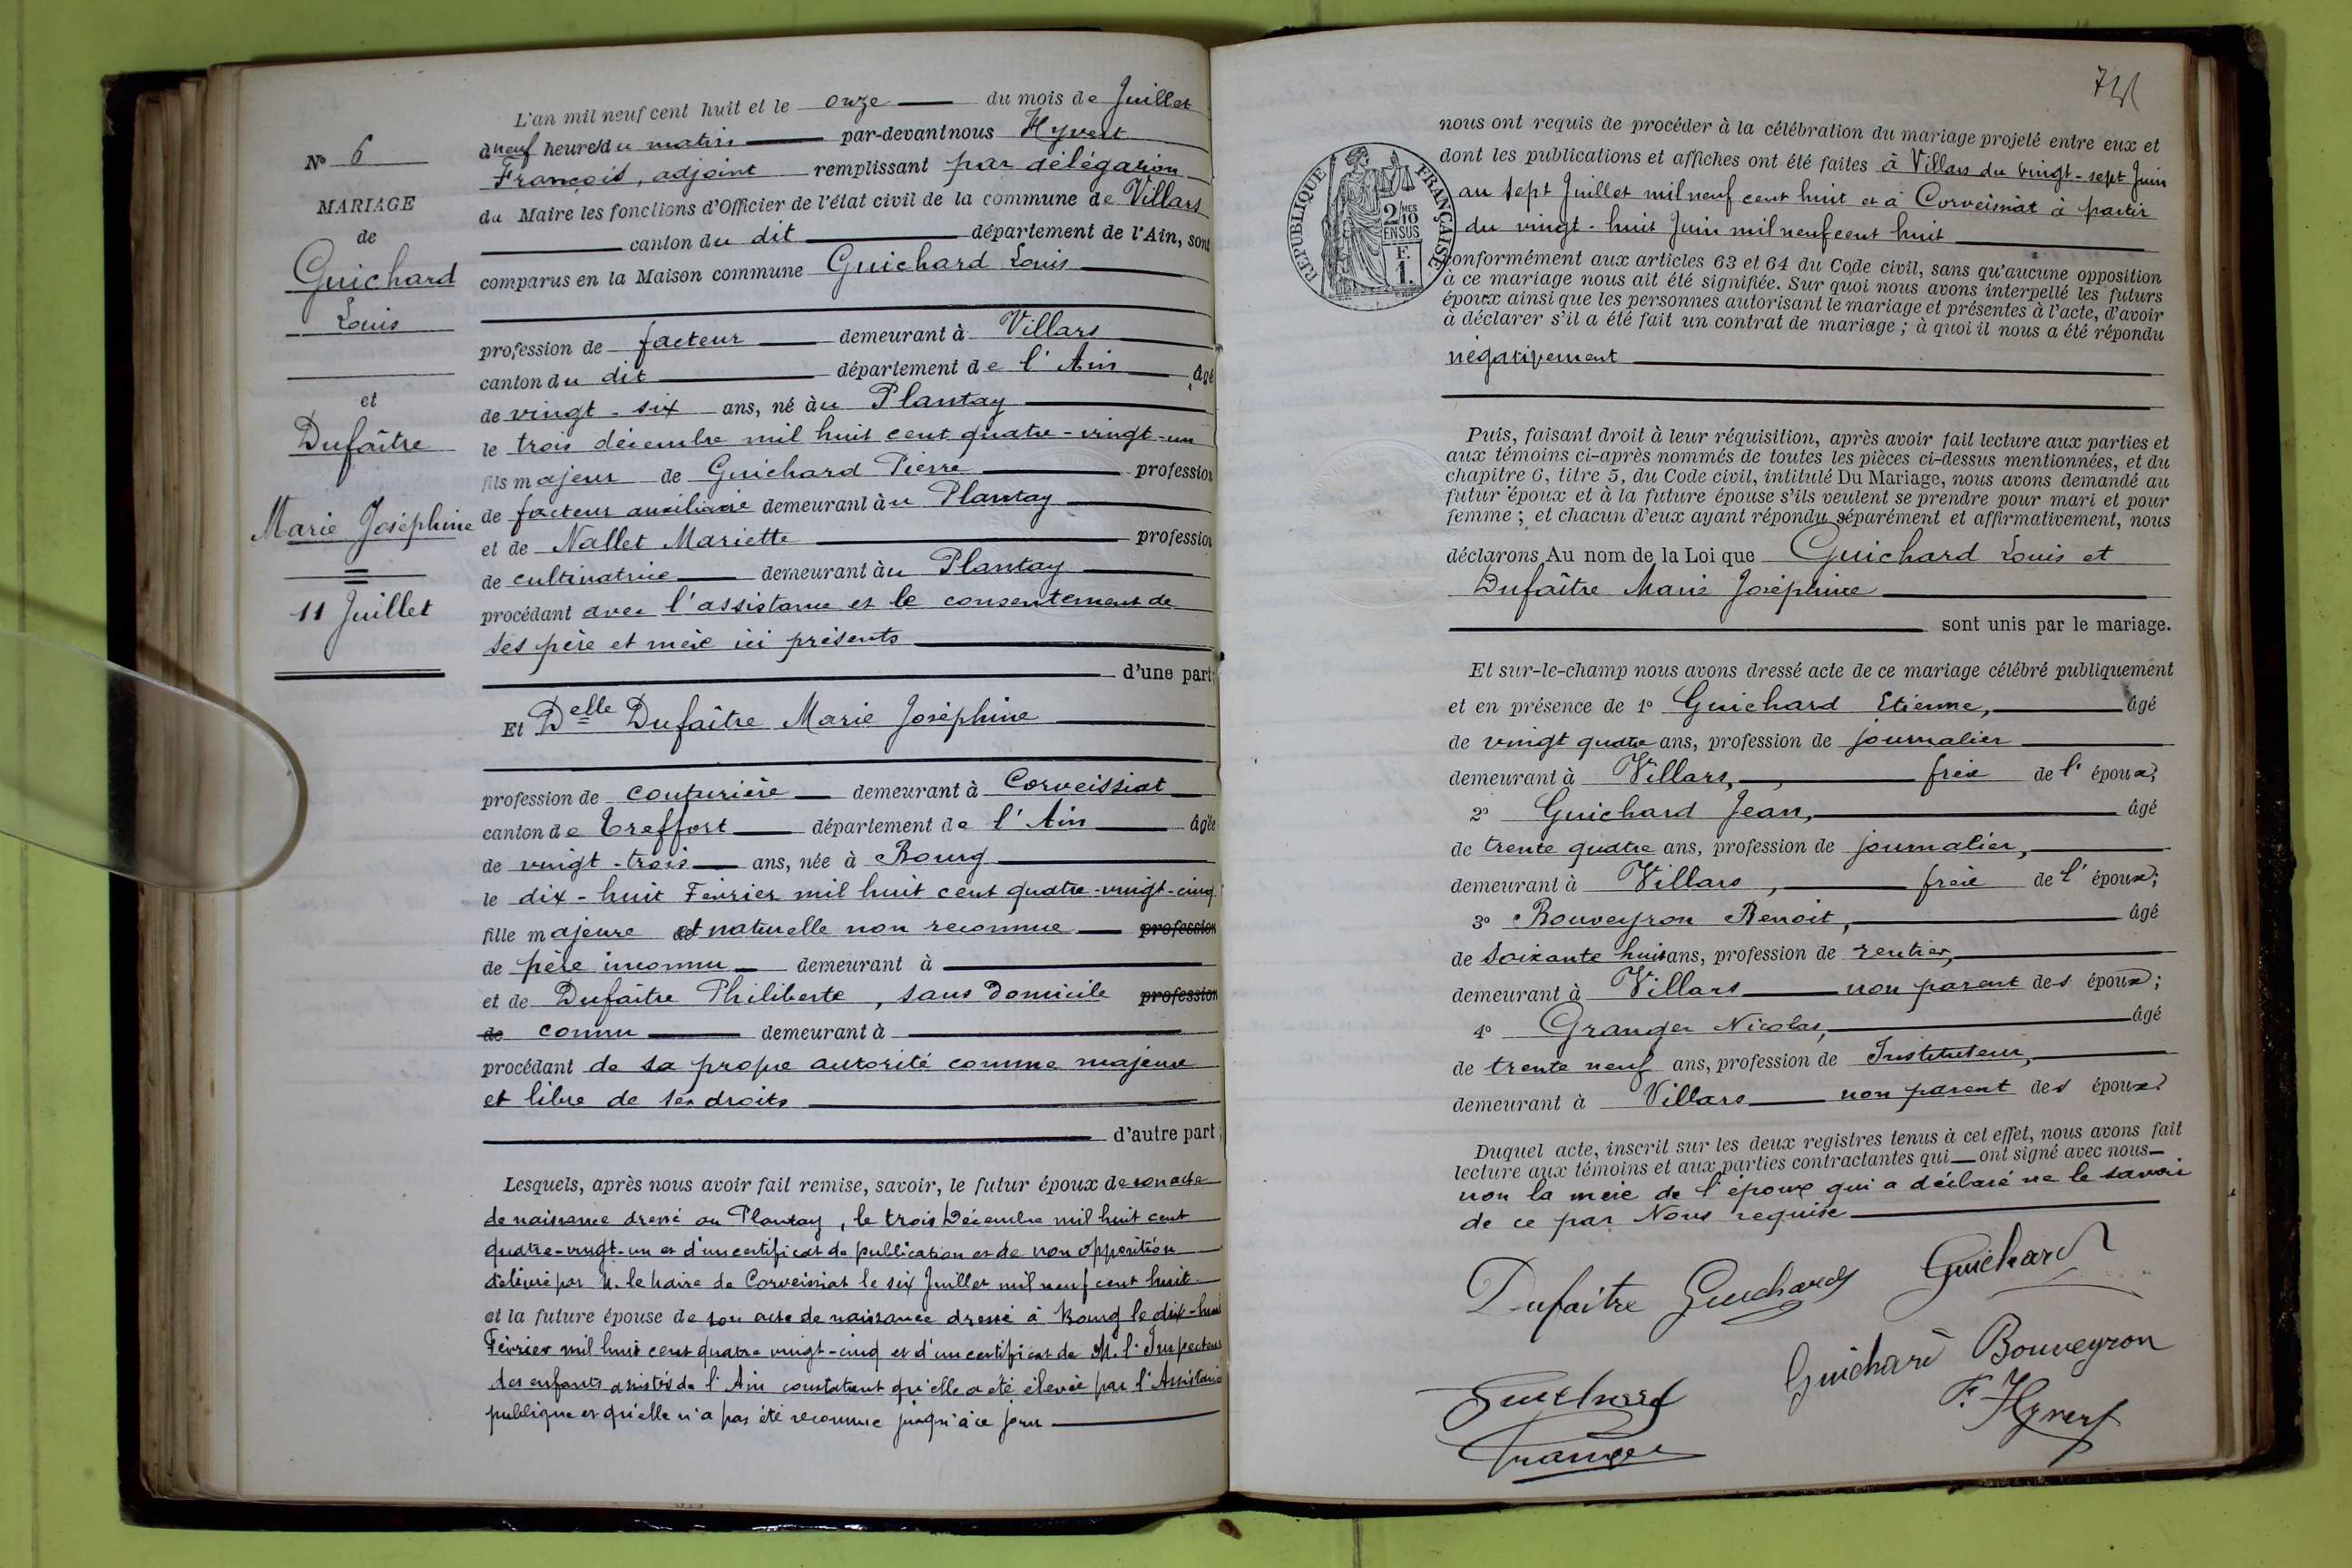 N° 6
MARIAGE
de
Guichard
Louis
et
Dufaître
Marie Joséphine
11 Juillet
L'an mil neuf cent huit et le onze du mois de Juillet
à neuf heures du matin par-devant nous Hyvert
François, adjoint remplissant par délégation
du Maire les fonctions d'Officier de l'état civil de la commune de Villars
canton du dit département de l'Ain, sont
comparus en la Maison commune Guichard Louis
profession de facteur demeurant à Villars
canton du dit département de l'Ain âgé
de vingt-six ans, né au Plantay
le trois décembre mil huit cent quatre-vingt-un
fils majeur de Guichard Pierre profession
de facteur auxiliaire demeurant au Plantay
et de Nallet Mariette profession
de cultivatrice demeurant au Plantay
procédant avec l'assistance et le consentement de
ses père et mère ici présents
d'une part;
Et Delle Dufaître Marie Joséphine
profession de couturière demeurant à Corveissiat
canton de Treffort département de l'Ain âgée
de vingt-trois ans, née à Bourg
le dix-huit Février mil huit cent quatre-vingt-cinq
fille majeure et naturelle non reconnue profession
de père inconnu demeurant à
et de Dufaître Philiberte, sans domicile profession
de connu demeurant à
procédant de sa propre autorité comme majeure
et libre de ses droits
d'autre part;
Lesquels, après nous avoir fait remise, savoir, le futur époux de son acte
de naissance dressé au Plantay, le trois Décembre mil huit cent
quatre-vingt-un et d'un certificat de publication et de non opposition
délivré par M. le Maire de Corveissiat le six Juillet mil neuf cent huit
et la future épouse de son acte de naissance dressé à Bourg le dix-huit
Février mil huit cent quatre vingt-cinq et d'un certificat de M. l'Inspecteur
des enfants assistés de l'Ain constatant qu'elle a été élevée par l'Assistance
publique et qu'elle n'a pas été reconnue jusqu'à ce jour
RÉPUBLIQUE FRANÇAISE
2/10
MES
EN SUS
F.
1.
nous ont requis de procéder à la célébration du mariage projeté entre eux et
dont les publications et affiches ont été faites à Villars du vingt-sept Juin
au sept Juillet mil neuf cent huit et à Corveissiat à partir
du vingt-huit Juin mil neuf cent huit
conformément aux articles 63 et 64 du Code civil, sans qu'aucune opposition
à ce mariage nous ait été signifiée. Sur quoi nous avons interpellé les futurs
époux ainsi que les personnes autorisant le mariage et présentes à l'acte, d'avoir
à déclarer s'il a été fait un contrat de mariage; à quoi il nous a été répondu
négativement
Puis, faisant droit à leur réquisition, après avoir fait lecture aux parties et
aux témoins ci-après nommés de toutes les pièces ci-dessus mentionnées, et du
chapitre 6, titre 5, du Code civil, intitulé Du Mariage, nous avons demandé au
futur époux et à la future épouse s'ils veulent se prendre pour mari et pour
femme; et chacun d'eux ayant répondu séparément et affirmativement, nous
déclarons Au nom de la Loi que Guichard Louis et
Dufaître Marie Joséphine
sont unis par le mariage.
Et sur-le-champ nous avons dressé acte de ce mariage célébré publiquement
et en présence de 1° Guichard Etienne, âgé
de vingt quatre ans, profession de journalier
demeurant à Villars, frère de l'époux;
2° Guichard Jean, âgé
de trente quatre ans, profession de journalier,
demeurant à Villars, frère de l'époux;
3° Bouveyron Benoit, âgé
de soixante huit ans, profession de rentier,
demeurant à Villars non parent des époux;
4° Granger Nicolas, âgé
de trente neuf ans, profession de Instituteur,
demeurant à Villars non parent des époux
Duquel acte, inscrit sur les deux registres tenus à cet effet, nous avons fait
lecture aux témoins et aux parties contractantes qui ont signé avec nous
non la mère de l'époux qui a déclaré ne le savoir
de ce par Nous requise
Dufaitre Guichard Guichard
Guichard Guichard Bouveyron
Granger F. Hyvert